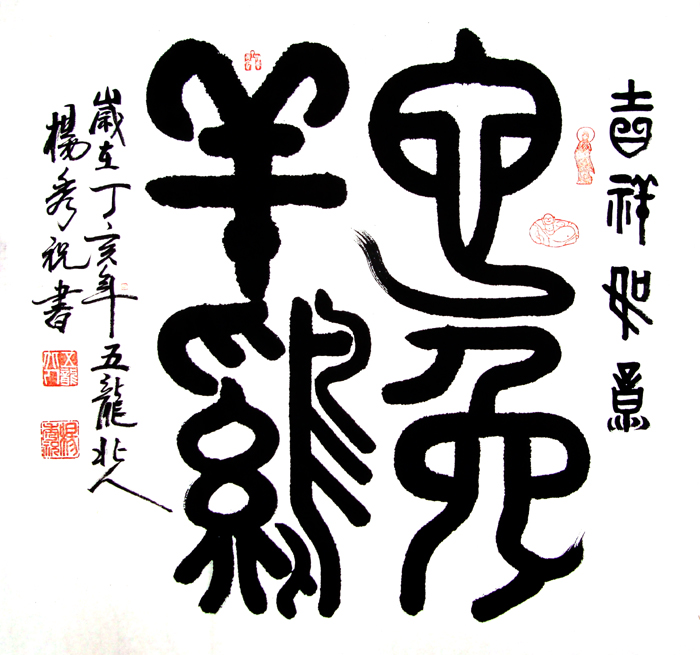 吉祥如意
羊鷄
歲在丁亥年五龍北人
楊秀祝書